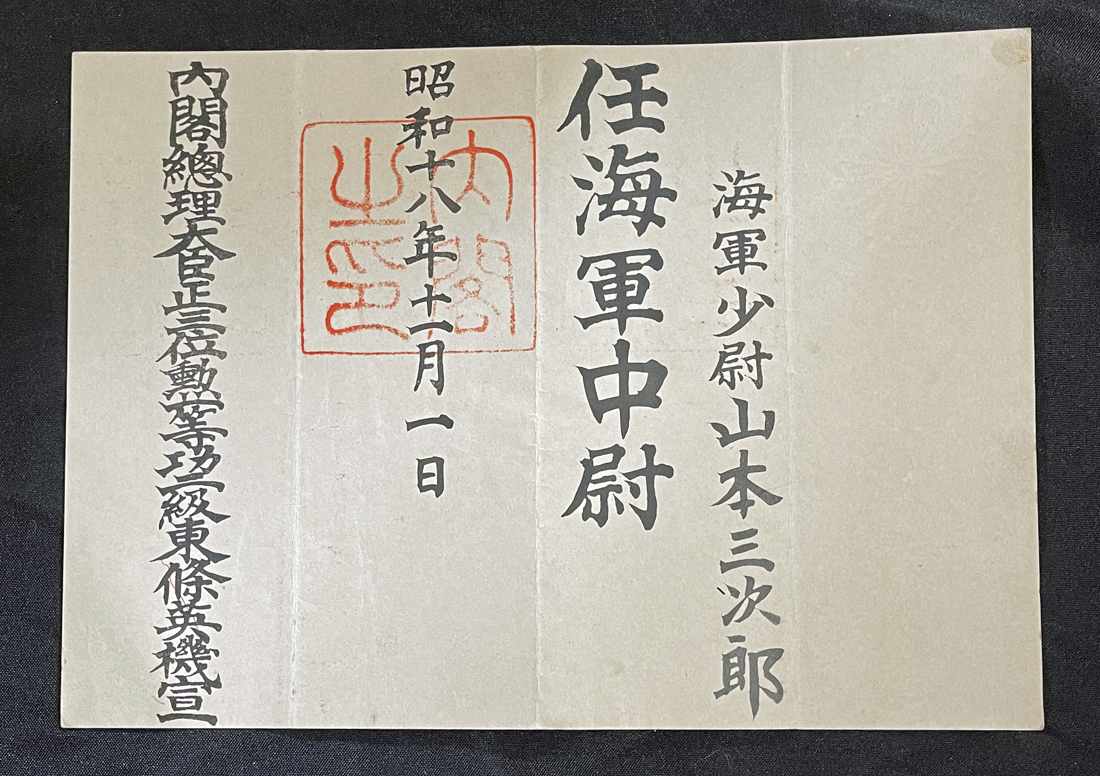 海軍少尉山本三次郎
任海軍中尉
昭和十八年十一月一日
内閣之印
内閣總理大臣正三位勲一等功二級東條英機宣